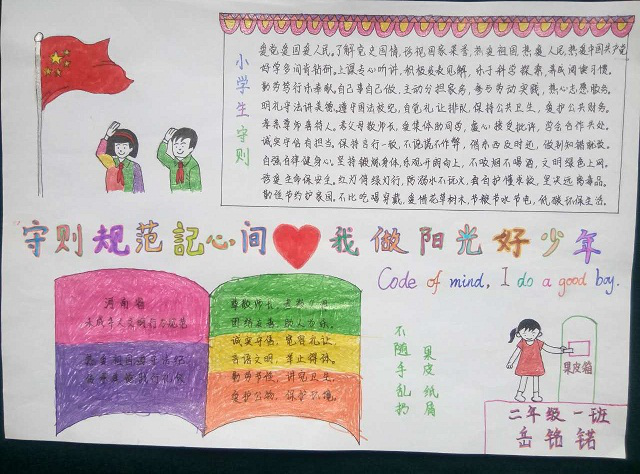 小学生守则
爱党爱国爱人民。了解党史国情,珍视国家荣誉,热爱祖国,热爱人民,热爱中国共产党
好学多问肯钻研。上课专心听讲,积极发表见解,乐于科学探索,养成阅读习惯。
勤劳笃行乐奉献。自己事自己做,主动分担家务,参与劳动实践,热心志愿服务。
明礼守法讲美德。遵守国法校纪,自觉礼让排队,保持公共卫生,爱护公共财务。
孝亲尊师善待人。孝父母敬师长,爱集体助同学,虚心接受批评,学会合作共处。
诚实守信有担当。保持言行一致,不说谎不作弊,借东西及时还,做到知错就改。
自强自律健身心。坚持锻炼身体,乐观开朗向上,不吸烟不喝酒,文明绿色上网。
珍爱生命保安全。红灯停绿灯行,防溺水不玩火,会自护懂求救,坚决远离毒品。
勤俭节约护家园。不比吃喝穿戴,爱惜花草树木,节粮节水节电,低碳环保生活。
守则规范記心间 我做阳光好少年
Code of mind, I do a good boy.
河南省
未成年人文明行为规范
热爱祖国遵守法纪
尊敬师长
团结友善,助人为乐,
诚实守信,宽容礼让
言语文明,举止得体,
勤劳节俭,讲究卫生,
爱护公物,保护环境。
不随手乱扔
果皮纸屑
果皮箱
二年级一班
岳铭锘